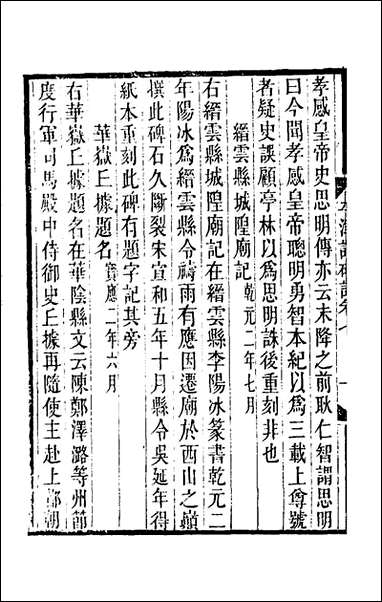 孝感皇帝史思明傳亦云未降之前耿仁智謂思明
曰今聞孝感皇帝聰明勇智本紀以爲三載上尊號
者疑史誤顧亭林以爲思明誅後重刻非也
縉雲縣城隍廟記乾元二年七月
右縉雲縣城隍廟記在縉雲縣李陽冰篆書乾元二
年陽冰爲縉雲縣令禱雨有應因遷廟於西山之巔
撰此碑石久斷裂宋宣和五年十月縣令吳延年得
紙本重刻此碑有題字記其旁
華嶽丘據題名寶應二年六月
右華嶽丘據題名在華陰縣文云陳鄭澤潞等州節
度行軍司馬嚴中侍御史丘據再隨使主赴上都朝